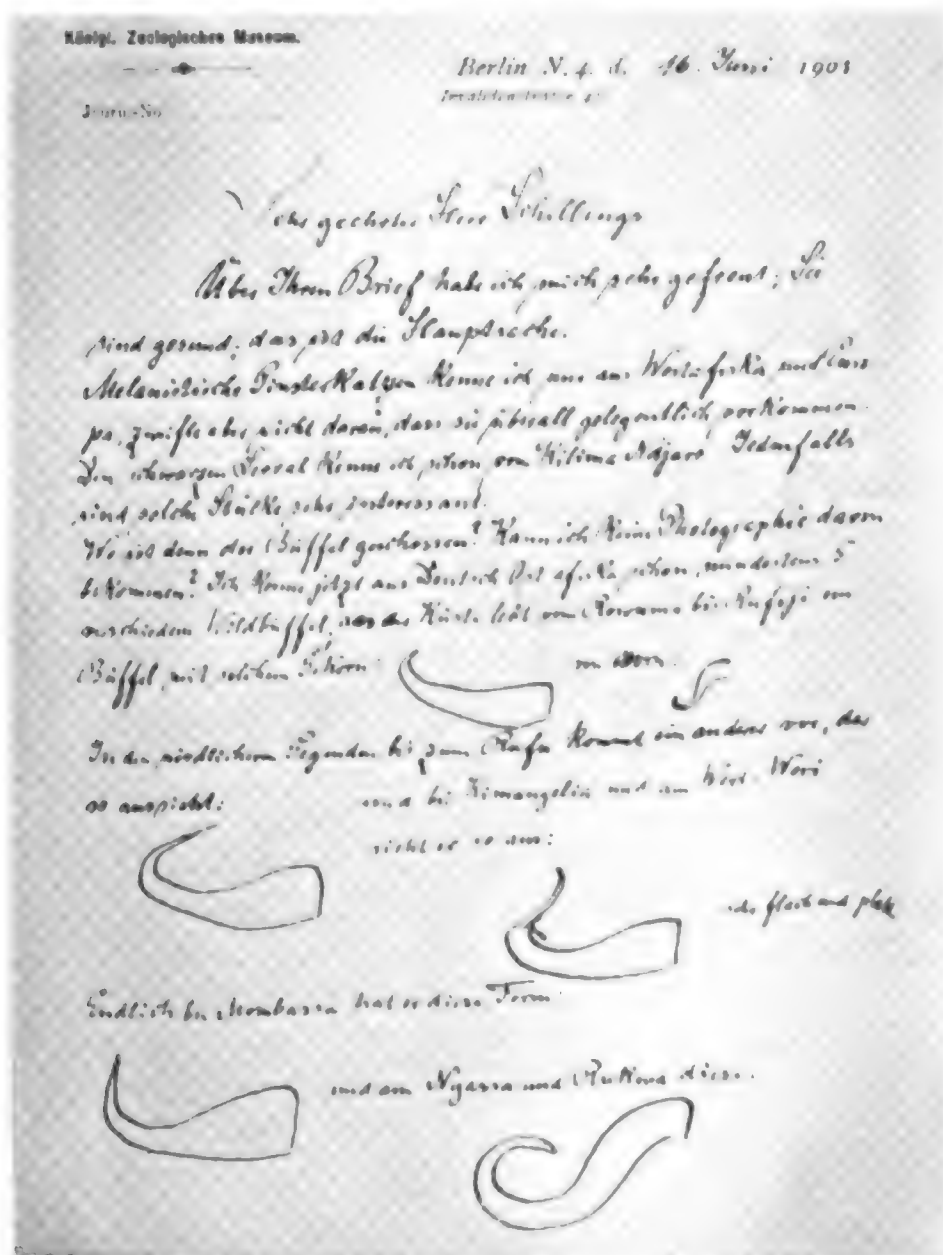 Königl. Zoologisches Museum.
Berlin N. 4. d. 16. Juni 1903
Invalidenstrasse 43
Journ.-No.
Sehr geehrter Herr Schillings
Über Ihren Brief habe ich mich sehr gefreut; Sie
sind gesund; das ist die Hauptsache.
Melanistische Ginsterkatzen kenne ich nur aus Westafrika und Euro
pa, zweifle aber nicht daran, dass sie überall gelegentlich vorkommen.
Den schwarzen Serval kenne ich schon vom Kilima Ndjaro Jedenfalls
sind solche Stücke sehr interessant.
Wo ist denn der Büffel geschossen? Kann ich keine Photographie davon
bekommen? Ich kenne jetzt aus Deutsch Ost afrika schon mindestens 5
verschiedene Wildbüffel, an der Küste lebt vom Rovuma bis Rufiji ein
Büffel mit solchem Gehörn: von vorn:
In den nördlicheren Gegenden bis zum Rufu kommt ein anderer vor, der
so aussieht: und bei Kimangelia und am Weri-Weri
sieht er so aus:
oder flach und platt
Endlich bei Mombassa hat er diese Form
und am Nyassa und Rukwa diese.